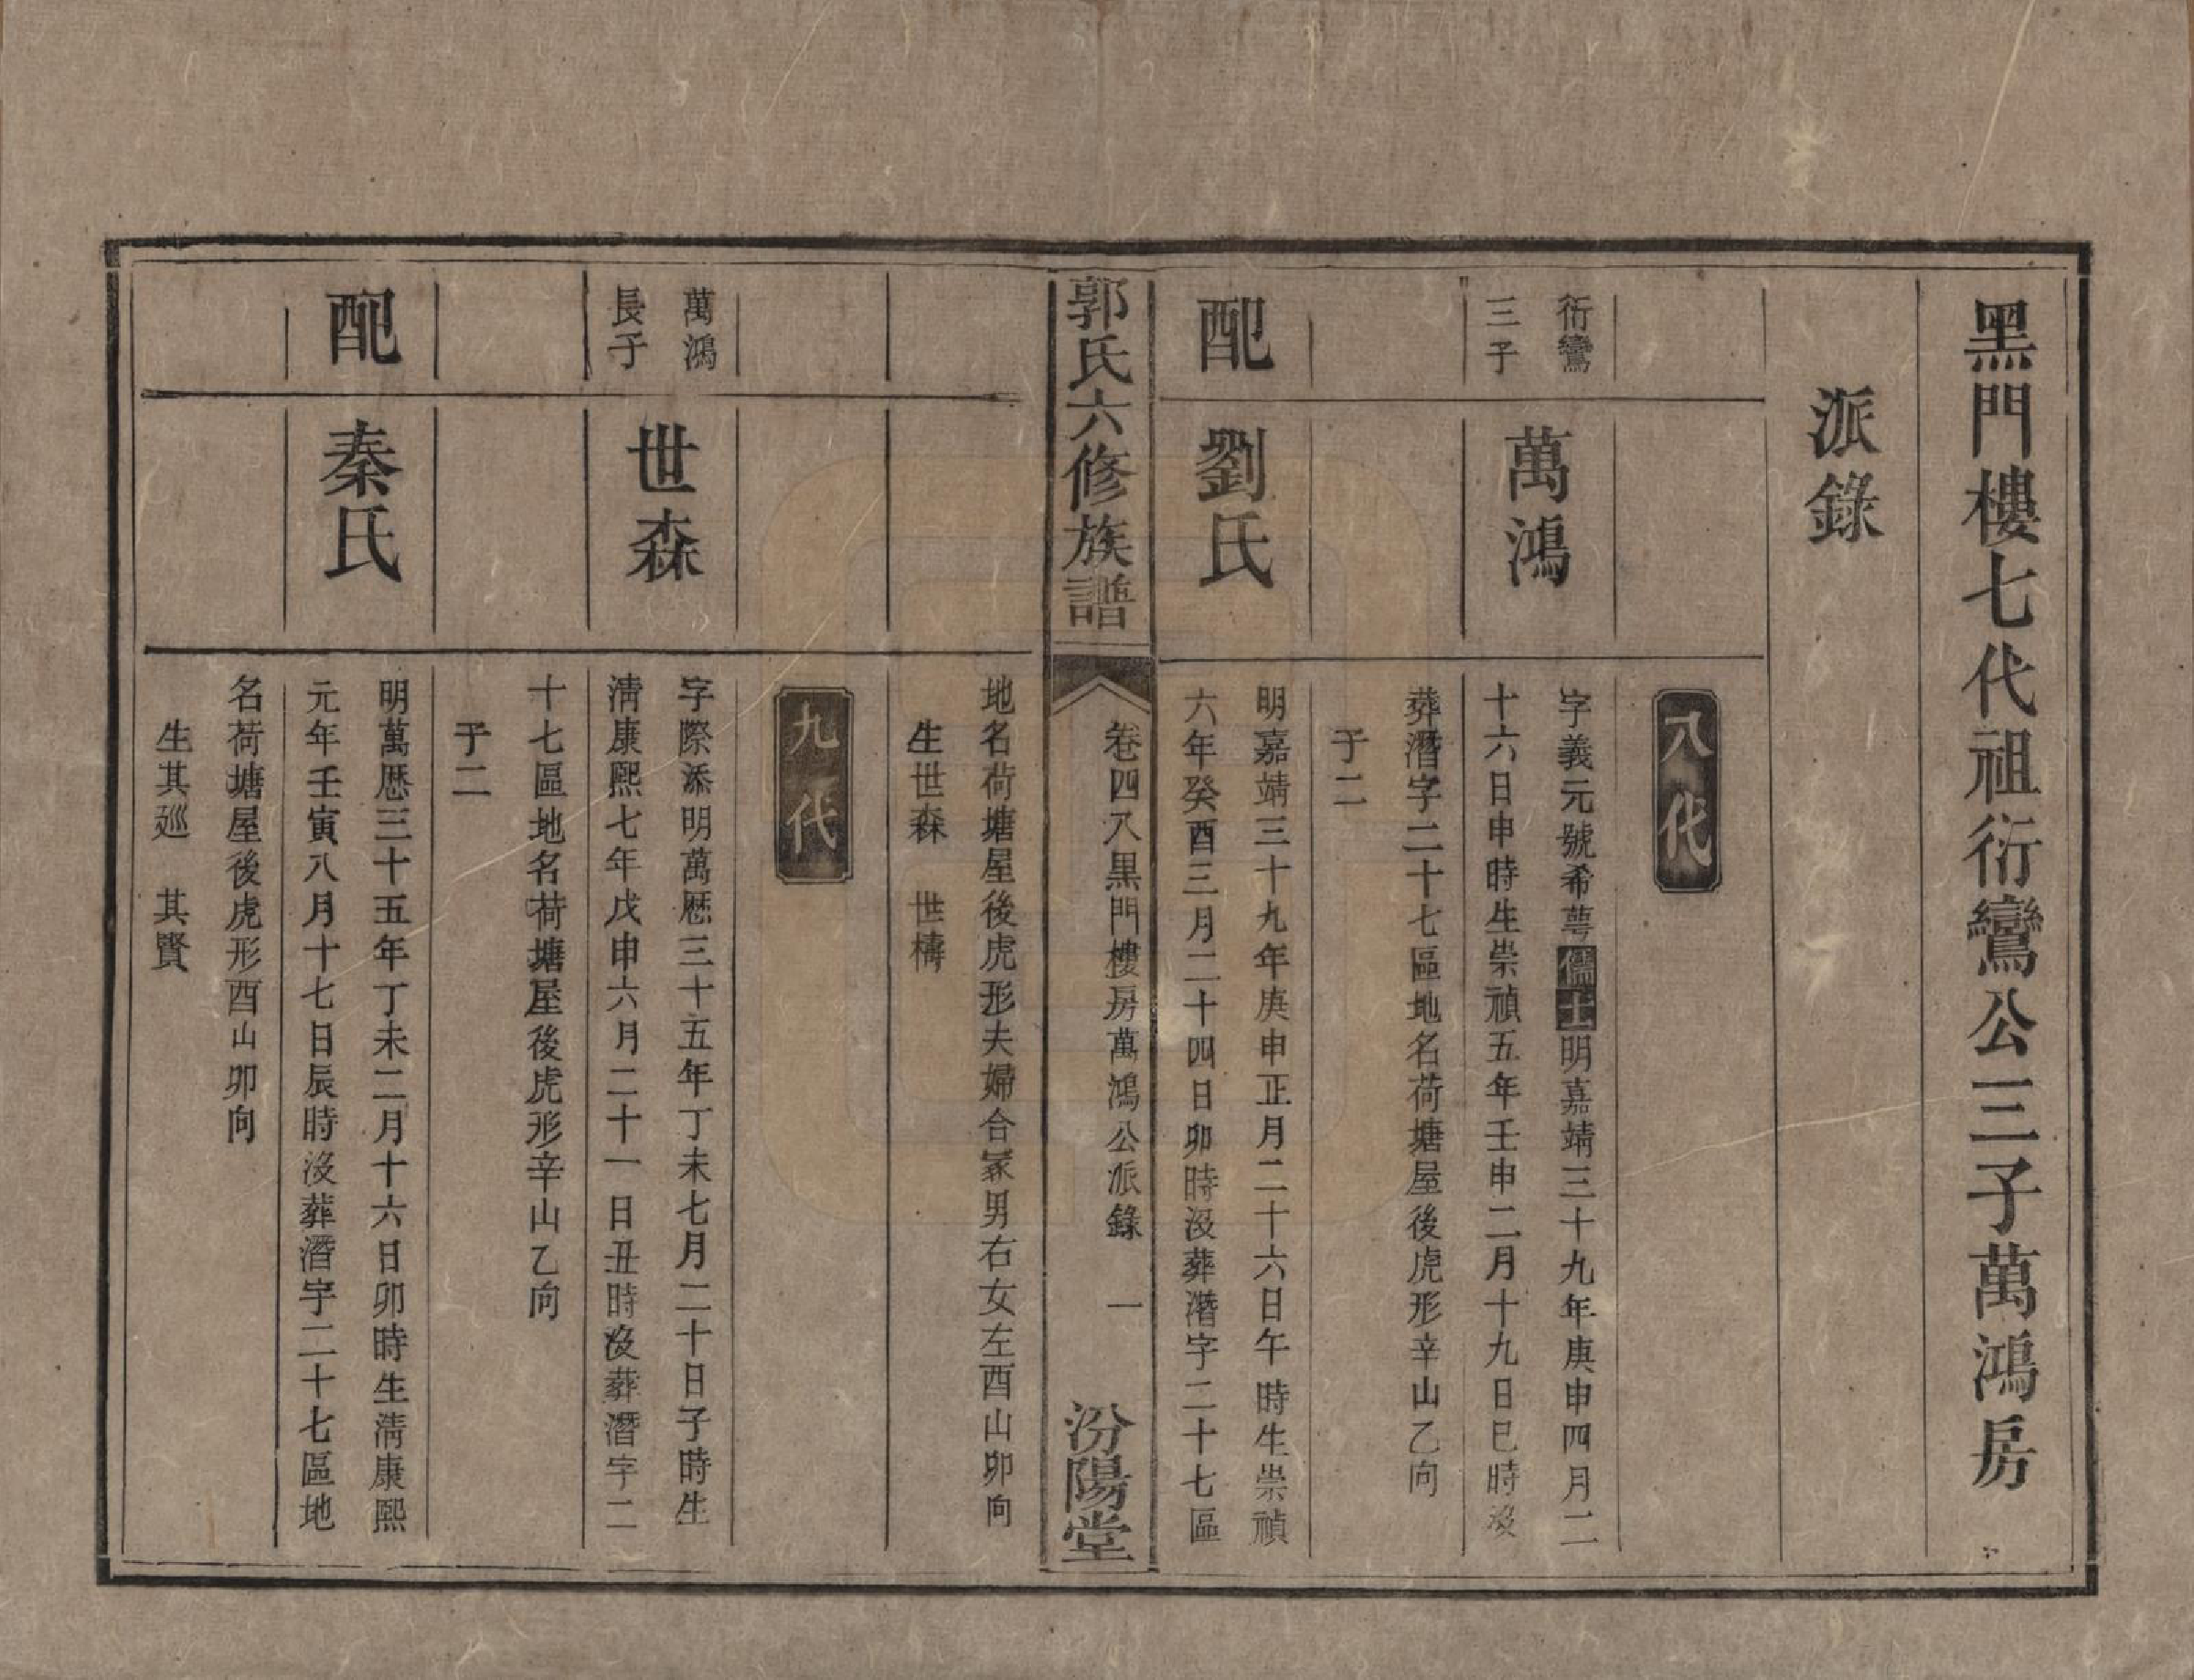 黑門樓七代祖衍鸞公三子萬鴻房
派錄
八代
衍鸞
三子
萬鴻
字義元號希萼儒士明嘉靖三十九年庚申四月二
十六日申時生崇禎五年壬申二月十九日巳時沒
葬潛字二十七區地名荷塘屋後虎形辛山乙向
子二
配
劉氏
明嘉靖三十九年庚申正月二十六日午時生崇禎
六年癸酉三月二十四日卯時沒葬潛字二十七區
郭氏六修族譜
卷四八黑門樓房萬鴻公派錄 一
汾陽堂
地名荷塘屋後虎形夫婦合冢男右女左酉山卯向
生世森 世檮
九代
萬鴻
長子
世森
字際添明萬厯三十五年丁未七月二十日子時生
淸康熙七年戊申六月二十一日丑時沒葬潛字二
十七區地名荷塘屋後虎形辛山乙向
子二
配
秦氏
明萬厯三十五年丁未二月十六日卯時生淸康熙
元年壬寅八月十七日辰時沒葬潛字二十七區地
名荷塘屋後虎形酉山卯向
生其廵 其賢